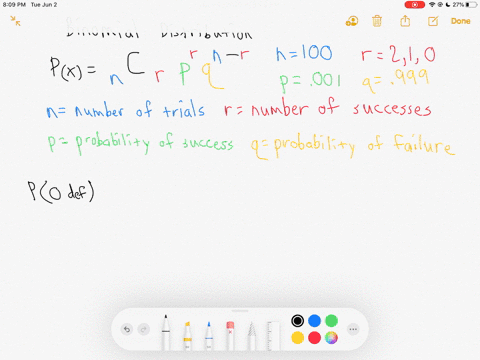 8:09 PM Tue Jun 2
27%
Done
Binomial Distribution
P(x) = nCr p^r q^n-r n=100 r=2,1,0
p=.001 q=.999
n=number of trials r=number of successes
p=probability of success q=probability of failure
P(0 def)